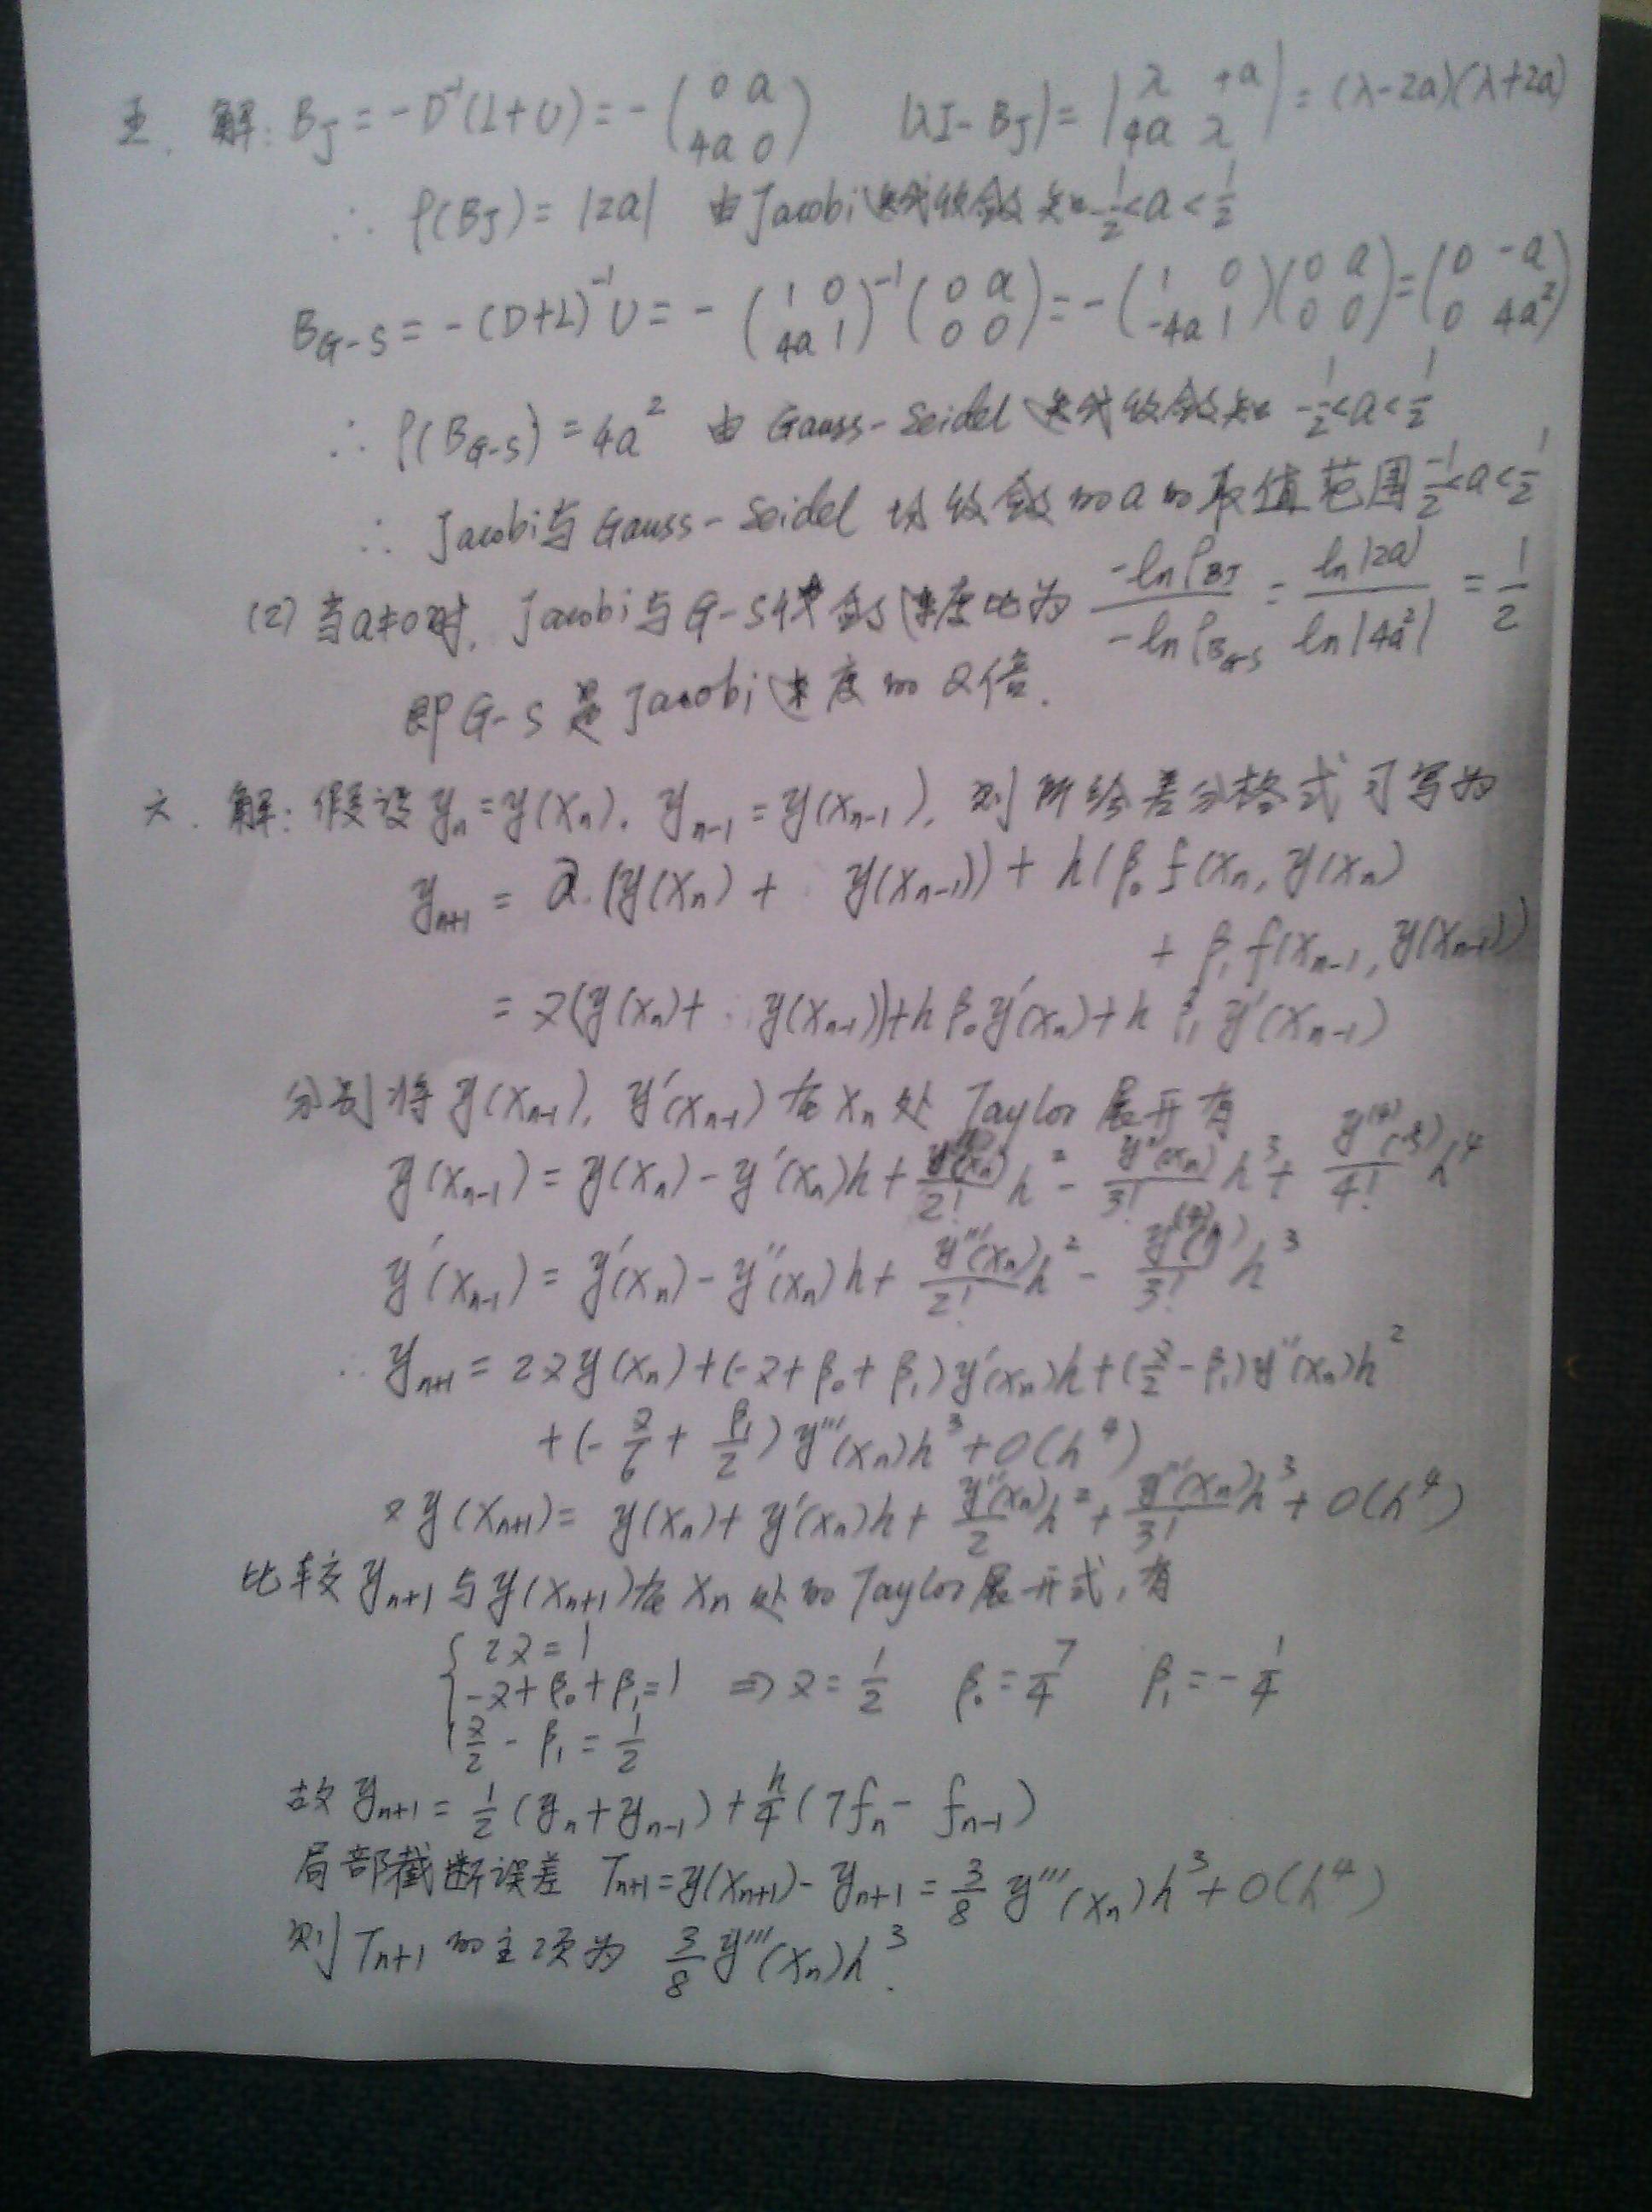 五. 解: B_J = -D⁻¹(L+U) = -(0 a; 4a 0) |λI - B_J| = |λ +a; 4a λ| = (λ-2a)(λ+2a)
∴ ρ(B_J) = |2a| 由Jacobi迭代收敛知 -1/2<a<1/2
B_{G-S} = -(D+L)⁻¹U = -(1 0; 4a 1)⁻¹(0 a; 0 0) = -(1 0; -4a 1)(0 a; 0 0) = (0 -a; 0 4a²)
∴ ρ(B_{G-S}) = 4a² 由 Gauss-Seidel 迭代收敛知 -1/2<a<1/2
∴ Jacobi与Gauss-Seidel 均收敛的a的取值范围 -1/2<a<1/2
(2) 当a≠0时, Jacobi与G-S收敛速度比为 -lnρ_{BJ}/-lnρ_{BG-S} = ln|2a|/ln|4a²| = 1/2
即G-S是Jacobi速度的2倍.
六. 解: 假设 y_n = y(x_n), y_{n-1} = y(x_{n-1}), 则所给差分格式可写为
y_{n+1} = α(y(x_n) + y(x_{n-1})) + h(β₀f(x_n, y(x_n)
+ β₁f(x_{n-1}, y(x_{n-1}))
= α(y(x_n) + y(x_{n-1})) + hβ₀y'(x_n) + hβ₁y'(x_{n-1})
分别将 y(x_{n-1}), y'(x_{n-1}) 在 x_n 处 Taylor 展开有
y(x_{n-1}) = y(x_n) - y'(x_n)h + y''(x_n)/2! h² - y'''(x_n)/3! h³ + y⁽⁴⁾(ξ)/4! h⁴
y'(x_{n-1}) = y'(x_n) - y''(x_n)h + y'''(x_n)/2! h² - y⁽⁴⁾(η)/3! h³
∴ y_{n+1} = 2αy(x_n) + (-α+β₀+β₁)y'(x_n)h + (α/2-β₁)y''(x_n)h²
+ (-α/6 + β₁/2)y'''(x_n)h³ + O(h⁴)
又 y(x_{n+1}) = y(x_n) + y'(x_n)h + y''(x_n)/2 h² + y'''(x_n)/3! h³ + O(h⁴)
比较 y_{n+1} 与 y(x_{n+1}) 在 x_n 处的 Taylor 展开式, 有
{ 2α = 1
-α+β₀+β₁=1 ⇒ α = 1/2 β₀ = 7/4 β₁ = -1/4
α/2 - β₁ = 1/2
故 y_{n+1} = 1/2(y_n + y_{n-1}) + h/4(7f_n - f_{n-1})
局部截断误差 T_{n+1} = y(x_{n+1}) - y_{n+1} = 3/8 y'''(x_n)h³ + O(h⁴)
则 T_{n+1} 的主项为 3/8 y'''(x_n)h³.